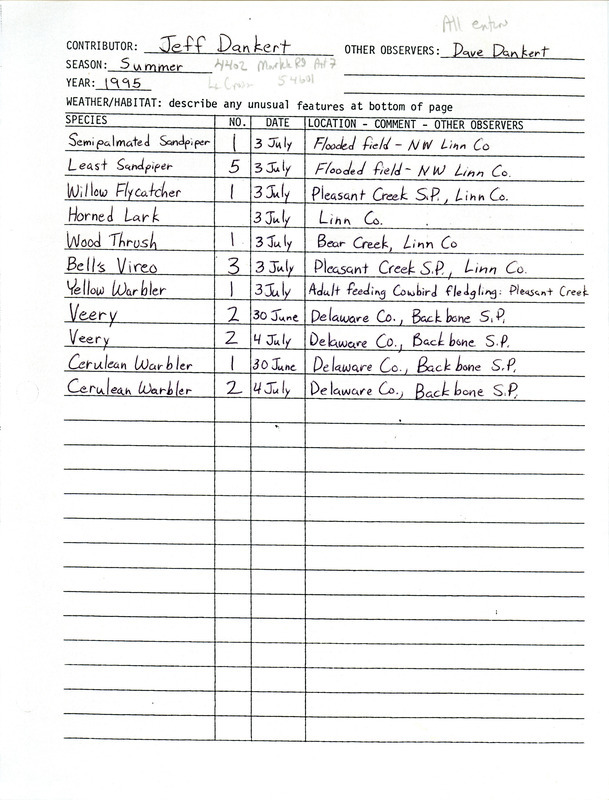 All
CONTRIBUTOR: Jeff Dankert OTHER OBSERVERS: Dave Dankert
SEASON: Summer 4402 Markle Rd Apt 7
YEAR: 1995 La Cross 54601
WEATHER/HABITAT: describe any unusual features at bottom of page
SPECIES NO. DATE LOCATION - COMMENT - OTHER OBSERVERS
Semipalmated Sandpiper 1 3 July Flooded field - NW Linn Co
Least Sandpiper 5 3 July Flooded field - NW Linn Co.
Willow Flycatcher 1 3 July Pleasant Creek S.P., Linn Co.
Horned Lark 3 July Linn Co.
Wood Thrush 1 3 July Bear Creek, Linn Co
Bell's Vireo 3 3 July Pleasant Creek S.P., Linn Co.
Yellow Warbler 1 3 July Adult feeding Cowbird fledgling: Pleasant Creek
Veery 2 30 June Delaware Co., Backbone S.P.
Veery 2 4 July Delaware Co., Backbone S.P.
Cerulean Warbler 1 30 June Delaware Co., Backbone S.P.
Cerulean Warbler 2 4 July Delaware Co., Backbone S.P.